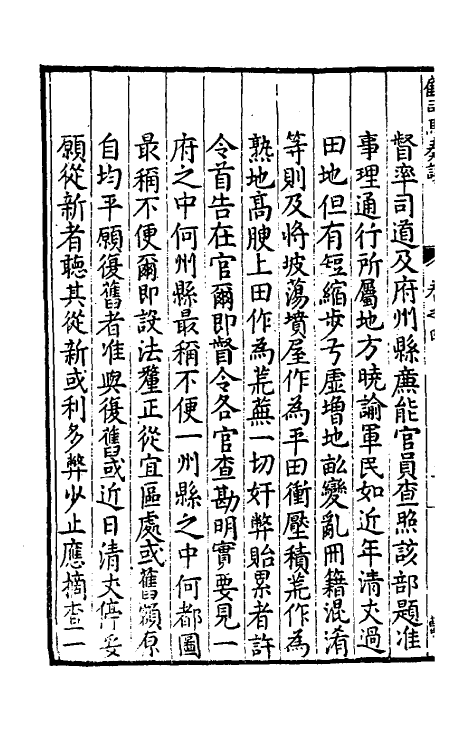 督率司道及府州縣廉能官員查照該部題准
事理通行所屬地方曉諭軍民如近年清丈過
田地但有短縮步弓虛增地畝變亂冊籍混淆
等則及將坡蕩墳屋作為平田衝壓積荒作為
熟地高腴上田作為荒蕪一切奸弊貽累者許
令首告在官爾即督令各官查勘明實要見一
府之中何州縣最稱不便一州縣之中何都圖
最稱不便爾即設法釐正從宜區處或舊額原
自均平願復舊者准與復舊或近日清丈停妥
願從新者聽其從新或利多弊少止應摘查一